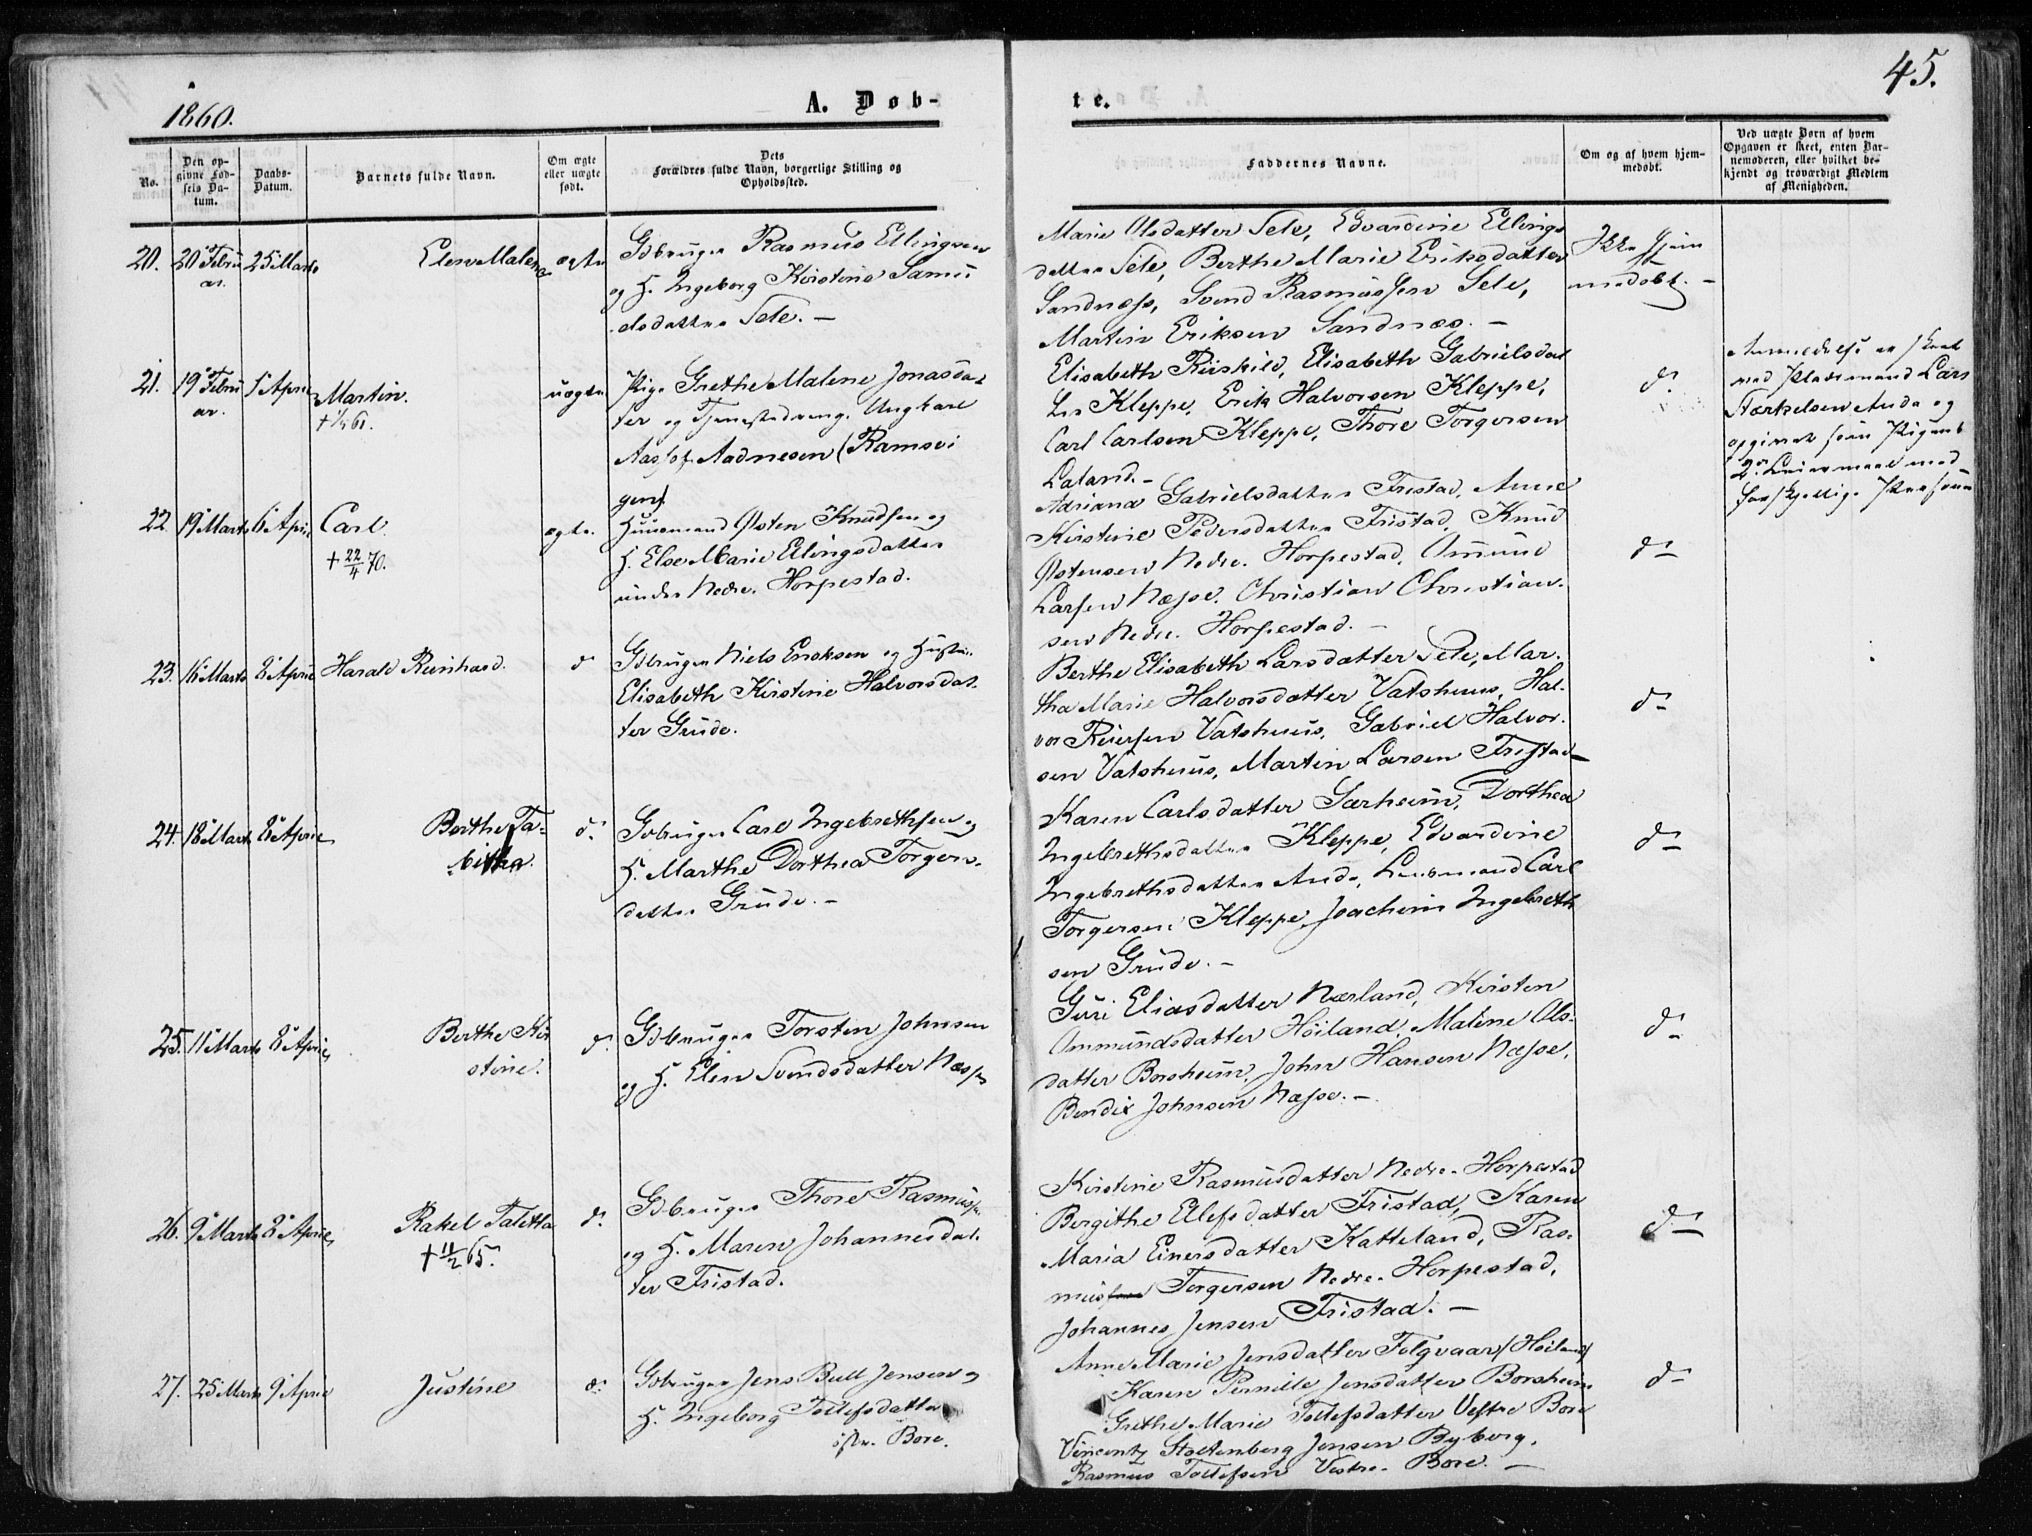 45.
1860.
A. Døb-
te.
No.
Den op-
givne Fød-
sels Da-
tum.
Daabs-
Datum.
Barnets fulde Navn.
Om ægte
eller uægte
født.
Dets
Forældres fulde Navn, borgerlige Stilling og
Opholdssted.
Faddernes Navne.
Om og af hvem hjem-
medøbt.
Ved uægte Børn af hvem
Opgaven er skeet, enten Bar-
nemoderen, eller hvilket be-
kjendt og troværdigt Medlem
af Menigheden.
20. 20 Febru 25 Marts Elen Malene ægte Gbruger Rasmus Ellingsen
ar.
og H. Ingeborg Kirstine Samu
elsdatter Sele. —
Marie Olsdatter Sele, Edvardine Ellings
datter Sele, Berthe Marie Eriksdatter
Sandnæss, Svend Rasmussen Sele,
Martin Eriksen Sandnæs. —
Ikke hjem
medøbt. —
21. 19 Febru 1 April Martin. uægte Pige Grethe Malene Jonasdat
ar.
+ 61.
ter og Ungkarl
Aadnesen (Ramsvi
gen).
Elisabeth Reiskild, Elisabeth Gabrielsdat
ter Kleppe, Erik Halvorsen Kleppe,
Carl Carlsen Kleppe, Thore Torgersen
Laland. —
do
Anmeldelse er skeet
ved Pladsmand Lars
Stærkelsen Anda og
opgivet som Pigens
2det Leiermaal med
forskjellige Personer
22. 19 Marts 6 April Carl. ægte. Huusmand Østen Knudsen og
+ 22/4 70.
H. Else Marie Ellingsdatter
under Nedre Horpestad.
Adriana Gabrielsdatter Tristad, Anne
Kirstine Pedersdatter Tristad, Knud
Østensen Nedre Horpestad, Omund
Larsen Næsse, Christian Christian-
sen Nedre Horpestad. —
do
23. 16 Marts 8 April Harald Reinhard. do Gbruger Niels Eriksen og Hustru
Elisabeth Kirstine Halvorsdat-
ter Grude.
Berthe Elisabeth Larsdatter Sele, Mar-
tha Marie Halvorsdatter Vatshuus, Hal-
vor Reiersen Vatshuus, Gabriel Halvor-
sen Vatshuus, Martin Larsen Tristad —
do
24. 18 Marts 8 April Berthe Ta-
bitha. do Gbruger Carl Ingebrethsen og
H. Marthe Dorthea Torgers-
datter Grude. —
Karen Carlsdatter Særheim, Dorthea
Ingebrethsdatter Kleppe, Edvardine
Ingebrethsdatter Anda, Carl
Torgersen Kleppe, Joachim Ingebreth
sen Grude. —
do
25. 11 Marts 8 April Berthe Kir
stine. do Gbruger Torsten Johnsen
og H. Elen Svendsdatter Næsse
Guri Eliasdatter Nærland, Kirsten
Ommundsdatter Höiland, Malene Ols-
datter Borsheim, John Hansen Næsse,
Bendix Johnsen Næsse. —
do
26. 9 Marts 8 April Rakel Taletta do Gbruger Thore Rasmussen
+ 11/2 65.
og H. Maren Johannesdat-
ter Tristad.
Kirstine Rasmusdatter Nedre Horpestad
Bergithe Elefsdatter Tristad, Karen
Maria Einersdatter Katteland, Ras-
mus Torgersen Nedre Horpestad,
Johannes Jensen Tristad. —
do
27. 25 Marts 9 April Justine do Gbruger Jens Bull Jensen og
H. Ingeborg Tollefsdatter
østre Bore.
Anne Marie Jensdatter Folgvaar (Höiland)
Karen Pernille Jensdatter Borsheim
Grethe Marie Tollefsdatter Vestre Bore
Vincentz Stoltenberg Jensen Byberg,
Rasmus Tollefsen Vestre Bore. —
do